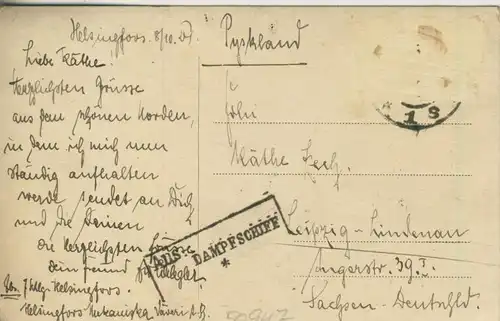 Helsingfors, 8/10. 27.
Liebe Käthe!
Herzlichsten Grüsse
aus dem schönen Norden,
in dem ich mich nun
ständig aufhalten
werde sendet an Dich
und die Deinen
die herzlichsten Grüsse
dein freund
Helsingfors.
Helsingfors Mekaniska Väveri A.B.
Tyskland
Frln
Käthe
Leipzig-Lindenau
Angerstr. 39 I.
Sachsen - Deutschld.
1 S
AUS DAMPFSCHIFF
*